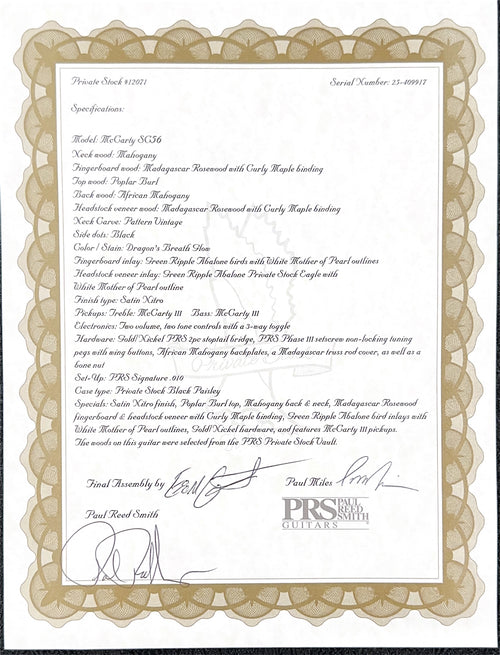 Private Stock #12071 Serial Number: 25-409917
Specifications:
Model: McCarty SC56
Neck wood: Mahogany
Fingerboard wood: Madagascar Rosewood with Curly Maple binding
Top wood: Poplar Burl
Back wood: African Mahogany
Headstock veneer wood: Madagascar Rosewood with Curly Maple binding
Neck Carve: Pattern Vintage
Side dots: Black
Color / Stain: Dragon's Breath Glow
Fingerboard inlay: Green Ripple Abalone birds with White Mother of Pearl outlines
Headstock veneer inlay: Green Ripple Abalone Private Stock Eagle with
White Mother of Pearl outline
Finish type: Satin Nitro
Pickups: Treble: McCarty III Bass: McCarty III
Electronics: Two volume, two tone controls with a 3-way toggle
Hardware: Gold/Nickel PRS 2pc stoptail bridge, PRS Phase III setscrew non-locking tuning
pegs with wing buttons, African Mahogany backplates, a Madagascar truss rod cover, as well as a
bone nut
Set-Up: PRS Signature .010
Case type: Private Stock Black Paisley
Specials: Satin Nitro finish, Poplar Burl top, Mahogany back & neck, Madagascar Rosewood
fingerboard & headstock veneer with Curly Maple binding, Green Ripple Abalone bird inlays with
White Mother of Pearl outlines, Gold/Nickel hardware, and features McCarty III pickups.
The woods on this guitar were selected from the PRS Private Stock Vault.
Final Assembly by
Paul Miles
Paul Reed Smith
PRS PAUL REED SMITH
GUITARS